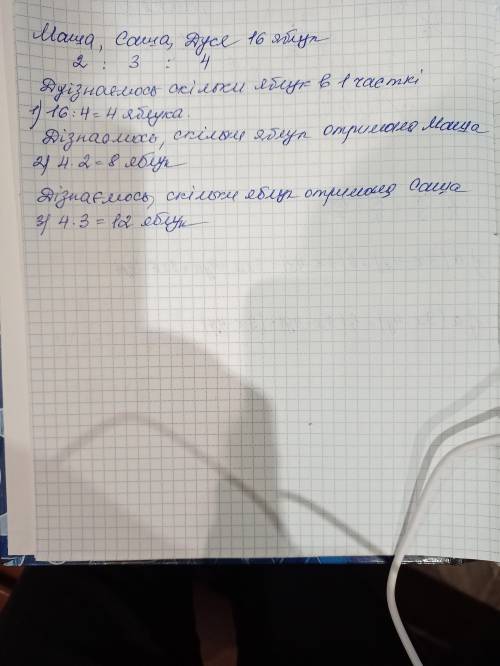 Маша, Саша, Дусе 16 яблук
2 : 3 : 4
Дуізнаємось скільки яблук в 1 часткі
1) 16:4=4 яблука.
Дізнаємось, скільки яблук отримана Маша
2) 4·2=8 яблук
Дізнаємось, скільки яблук отримана Саша
3) 4·3=12 яблук